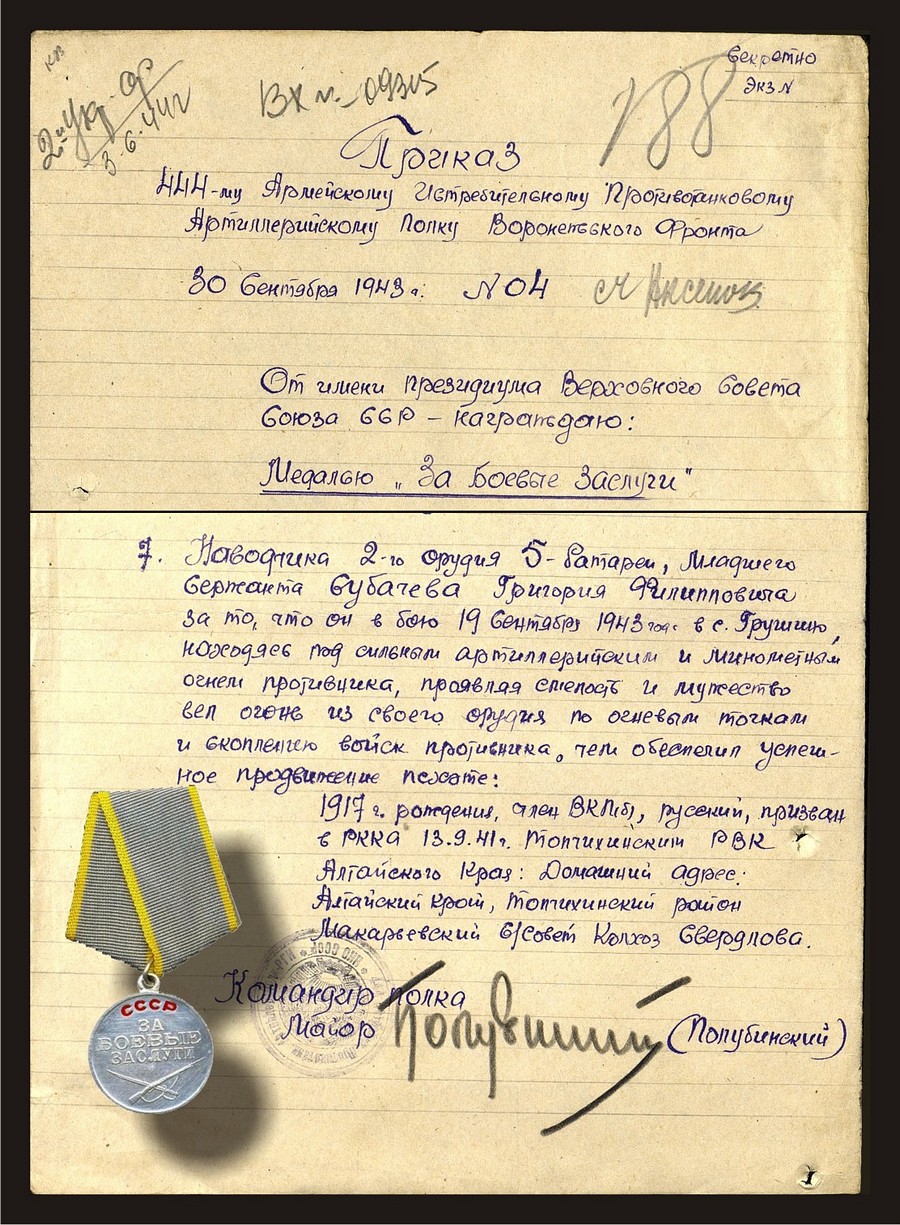 Секретно
Экз №
2й Укр. фр
3.6.44г
Вх №-09305
188
Приказ
444-му Армейскому Истребительному Противотанковому
Артиллерийскому Полку Воронежского Фронта
30 Сентября 1943 г. №04
От имени президиума Верховного Совета
Союза ССР – награждаю:
Медалью „За Боевые Заслуги"
7. Наводчика 2-го орудия 5-батареи, младшего
Сержанта Субачева Григория Филипповича
за то, что он в бою 19 Сентября 1943 года в с. Грушино,
находясь под сильным артиллерийским и минометным
огнем противника, проявляя смелость и мужество
вел огонь из своего орудия по огневым точкам
и скоплению войск противника, чем обеспечил успеш-
ное продвижение пехоте:
1917 г. рождения, член ВКП(б), русский, призван
в РККА 13.9.41г. Топчихинским РВК
Алтайского Края: Домашний адрес:
Алтайский край, Топчихинский район
Макарьевский с/совет Колхоз Свердлова.
Командир полка
Майор (Полубинский)
СССР
ЗА
БОЕВЫЕ
ЗАСЛУГИ
1